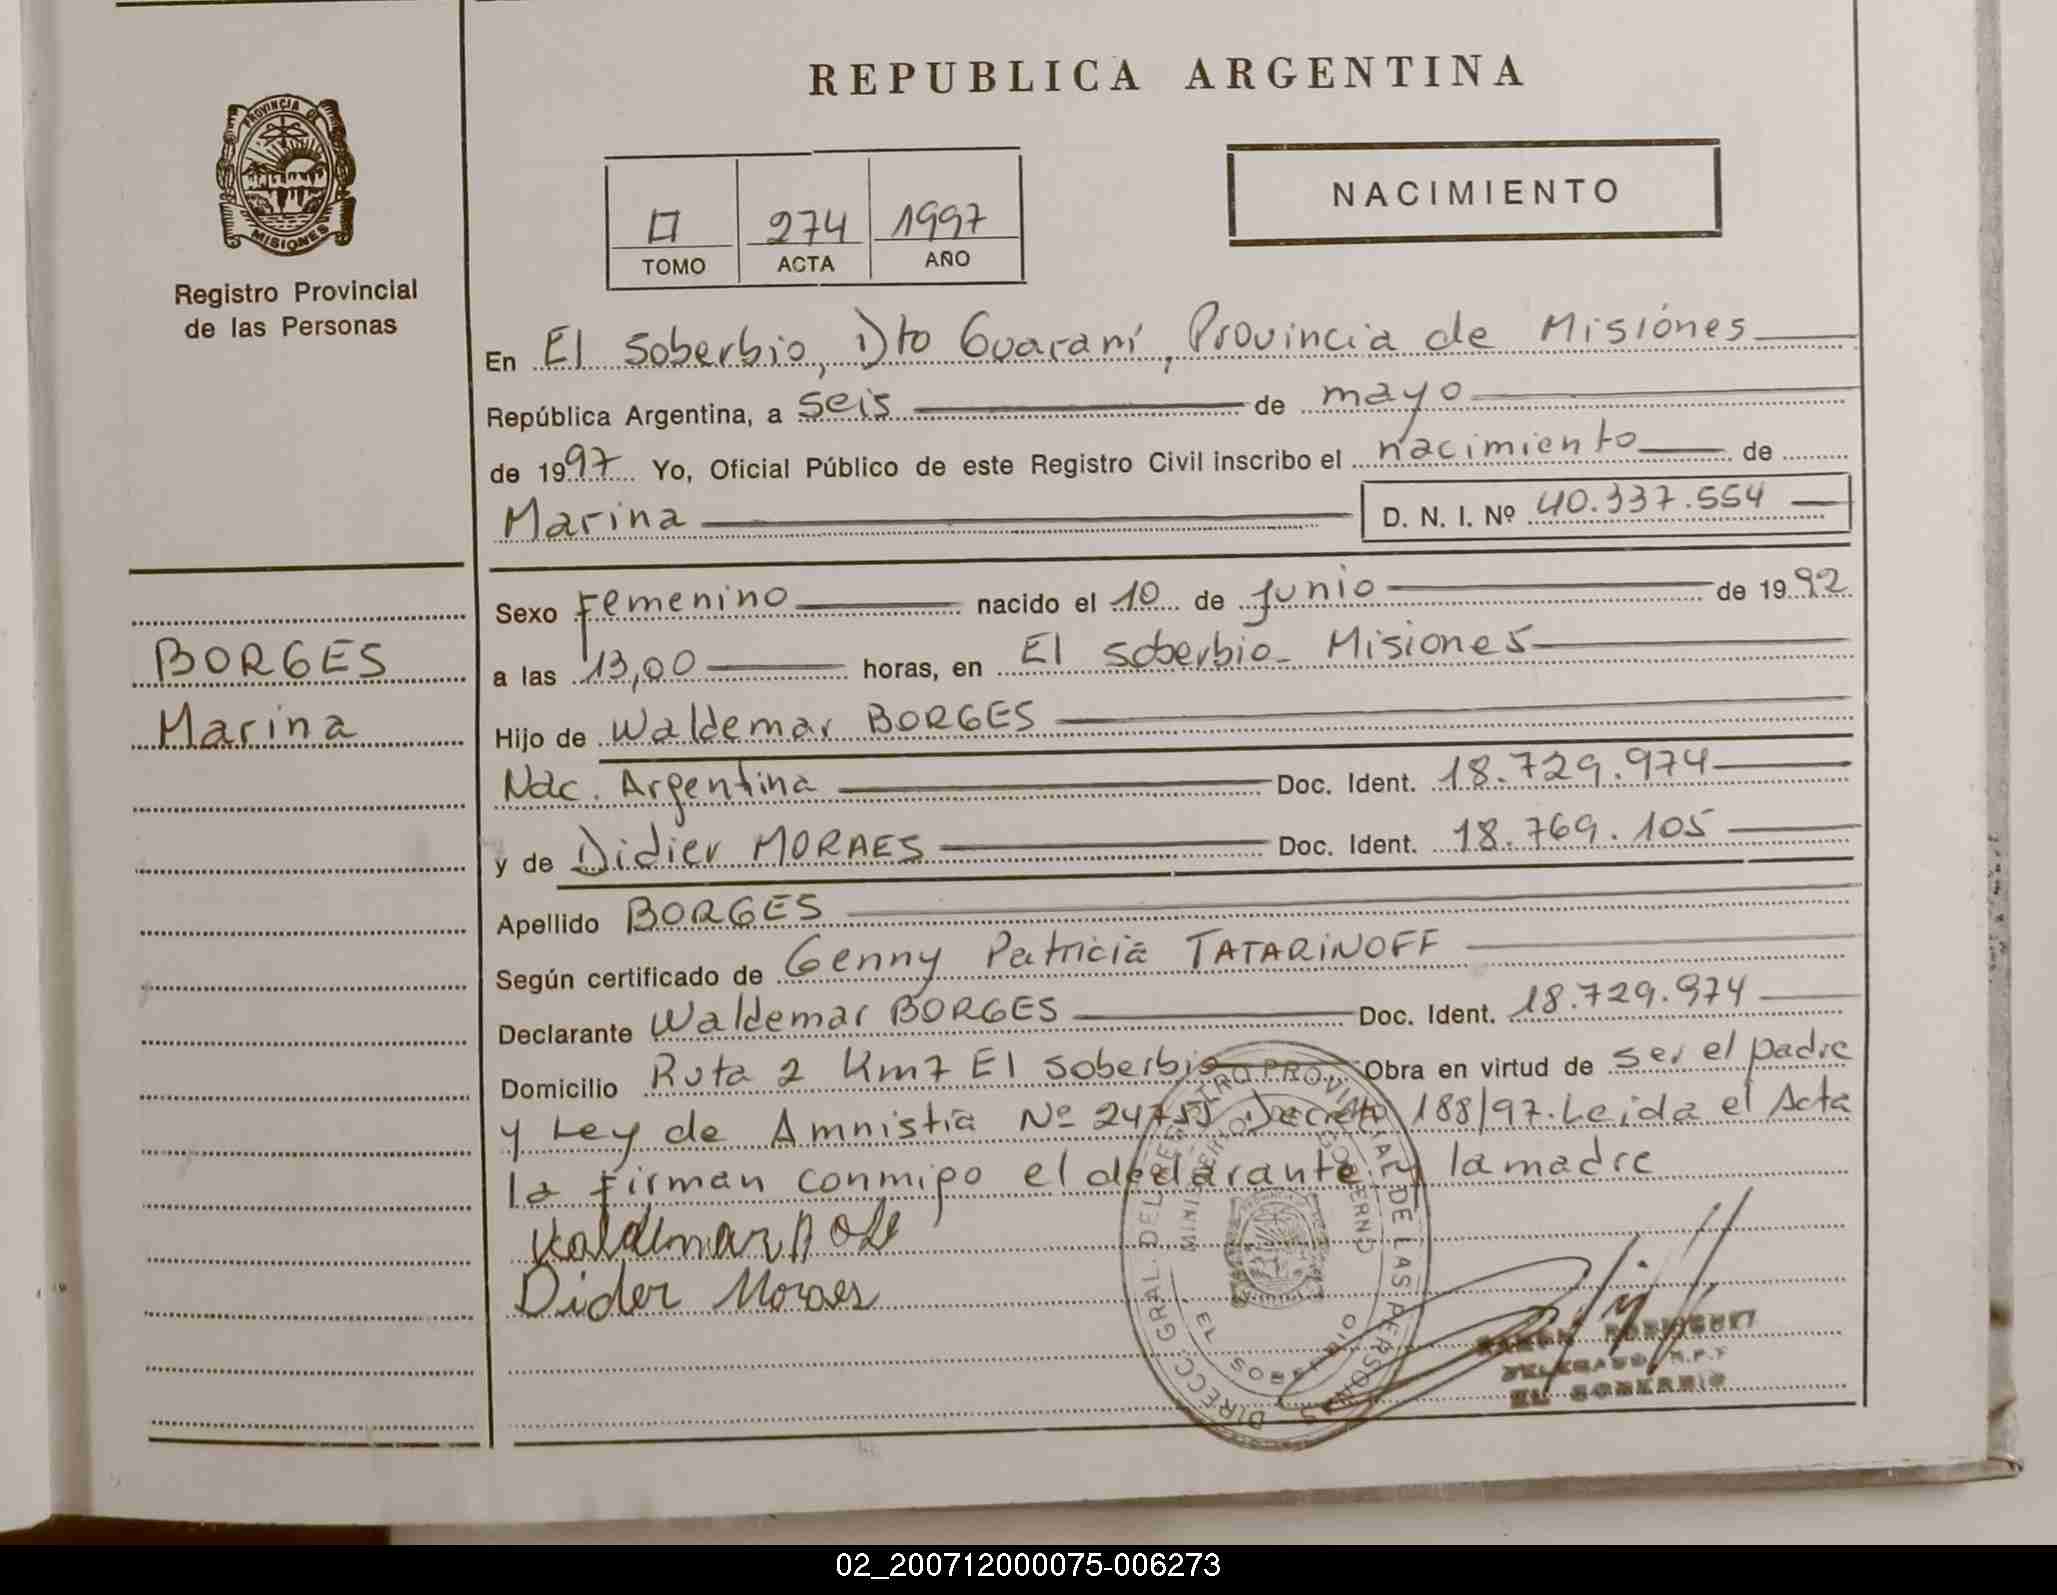 REPUBLICA ARGENTINA
PROVINCIA DE
MISIONES
Registro Provincial
de las Personas
NACIMIENTO
II 274 1997
TOMO ACTA AÑO
En El Soberbio, Dto Guaraní, Provincia de Misiones
República Argentina, a seis de mayo
de 1997 Yo, Oficial Público de este Registro Civil inscribo el nacimiento de
Marina D. N. I. Nº 40.337.554
Sexo Femenino nacido el 10 de Junio de 1992
BORGES
a las 13,00 horas, en El Soberbio - Misiones
Marina
Hijo de Waldemar BORGES
Nac. Argentina Doc. Ident. 18.729.974
y de Didier MORAES Doc. Ident. 18.769.105
Apellido BORGES
Según certificado de Genny Patricia TATARINOFF
Declarante Waldemar BORGES Doc. Ident. 18.729.974
Domicilio Ruta 2 Km7 El Soberbio Obra en virtud de ser el padre
y Ley de Amnistia Nº 24755 Decreto 188/97. Leida el Acta
la firman conmigo el declarante y la madre
Dider Moraes
DIRECC. GRAL. DEL REGISTRO PROVINCIAL DE LAS PERSONAS
MINISTERIO DE GOBIERNO
EL SOBERBIO
02_200712000075-006273